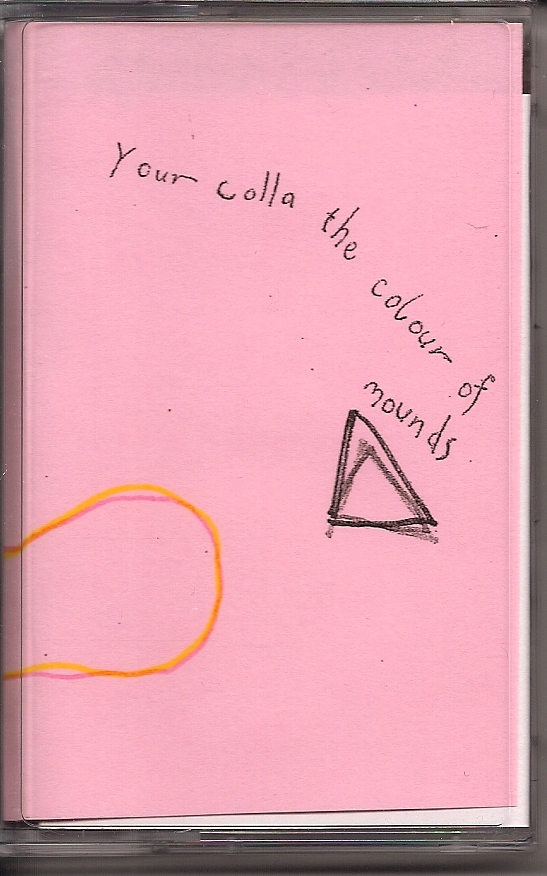 Your colla the colour of
mounds